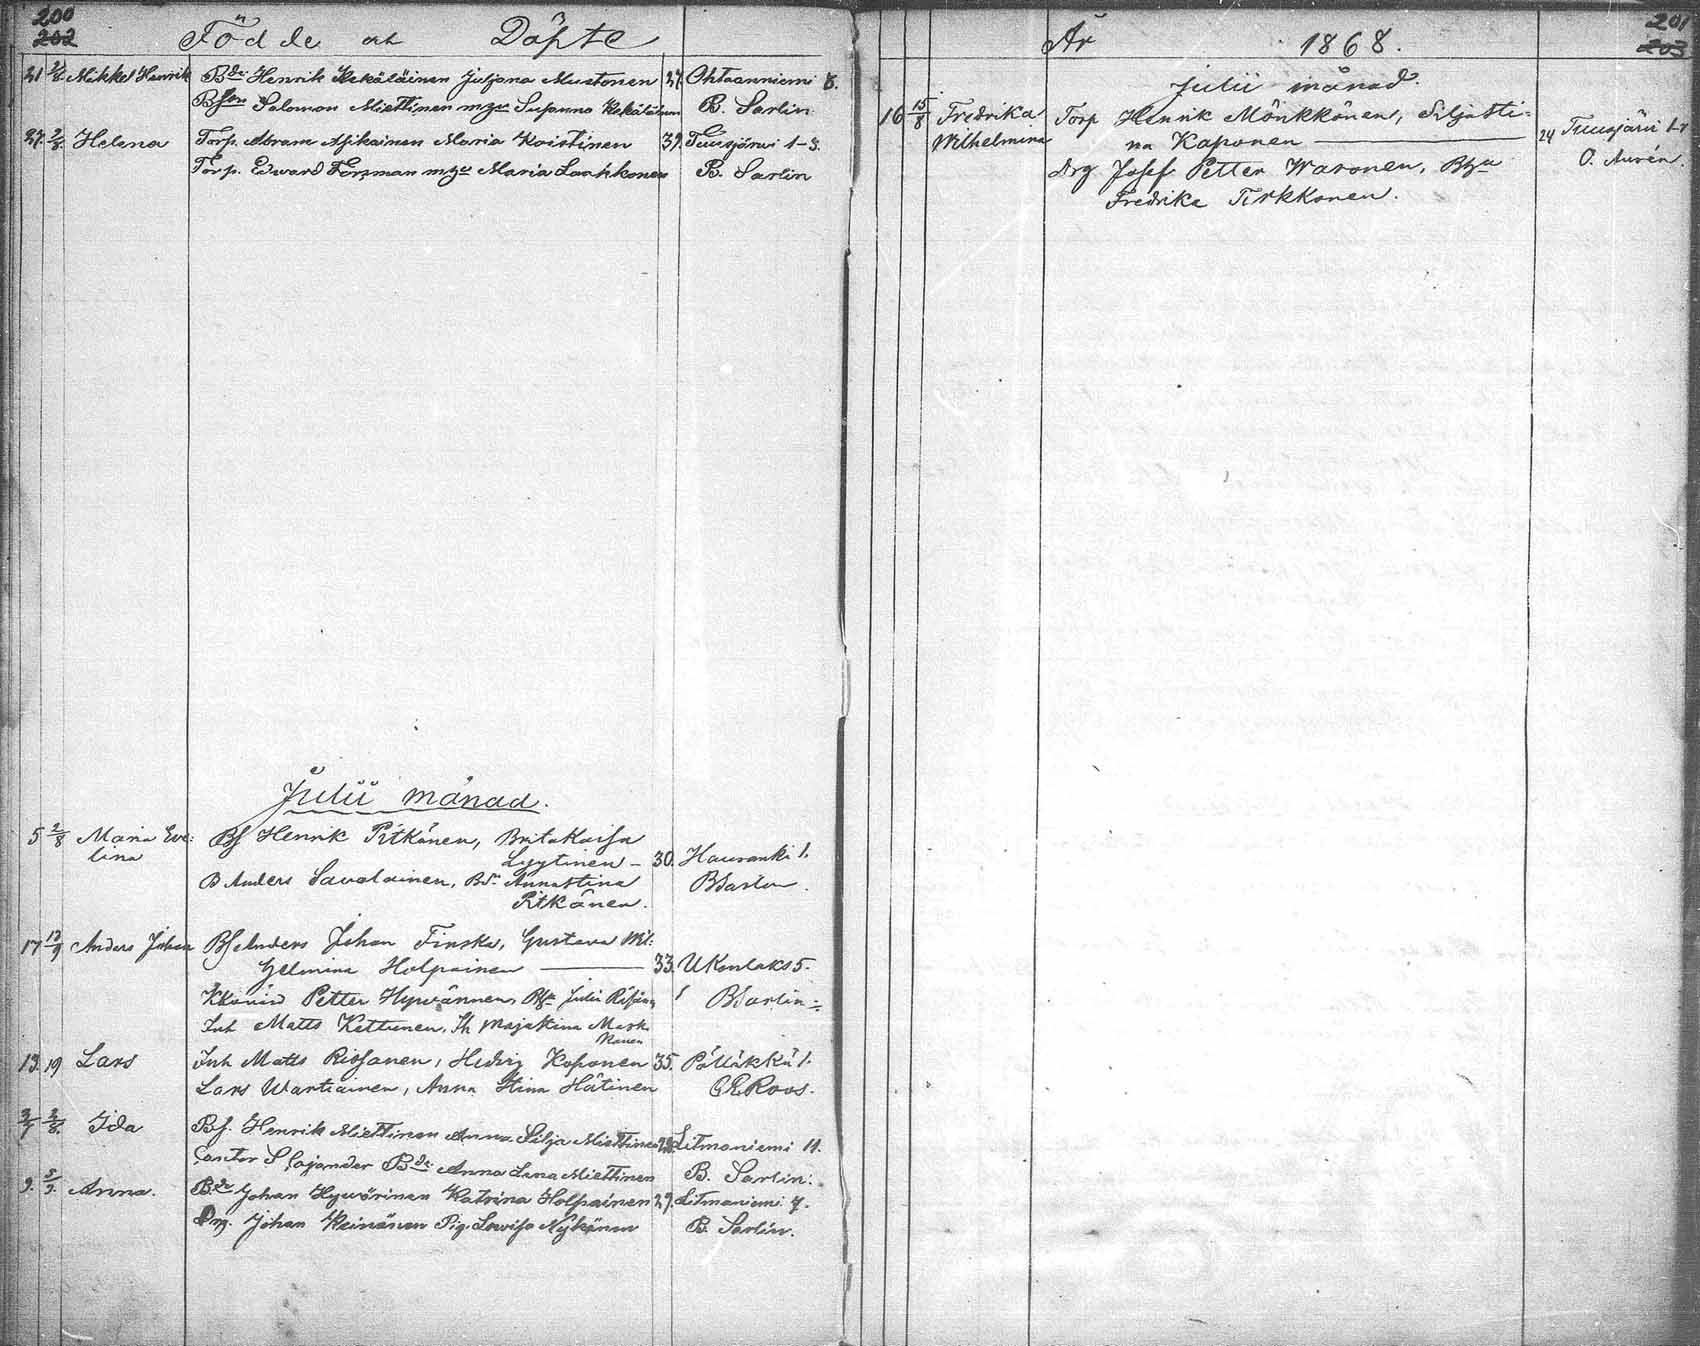 200
202
Födde och Döpte
21 2/8 Mikkel Henrik Bde Henrik Kekäläinen Juljana Mustonen 27. Ohtaanniemi 8.
Bson Salomon Miettinen m hu Susanna Kekäläinen B. Sarlin
27. 2/8. Helena Torp. Abram Asikainen Maria Koistinen 39. Tuusjärvi 1-3.
Torp. Edward Forsman m hu Maria Laakkonen B. Sarlin
Julii månad.
5 2/8 Maria Eve: Bf Henrik Pitkänen, Brita Kaisa
lina Lyytinen - 30. Hauranki 1.
B Anders Savolainen, Bdr Annastina BSarlin.
Pitkänen.
17 13/9 Anders Johan Bf Anders Johan Finska, Gustava Wil:
helmina Holpainen 33. UKonlaks 5.
Petter Hyvönnen, Julii BSarlin
Inh Matts Kettunen, Ih Majastina Mark
kanen
13. 19 Lars Inh Matts Rissanen, Hedvig Koponen 35. Pölläkkä 1.
Lars Wartiainen, Anna Stina Hätinen CERoos.
3/7 2/8. Ida Bf. Henrik Miettinen Anna Silja Miettinen 28. Litmaniemi 11.
Cantor S Cajander Bde Anna Lena Miettinen B. Sarlin.
9. 5/9. Anna. Bde Johan Hyvärinen Katrina Holpainen 27. Litmaniemi 7.
Drg. Johan Keinänen Pig. Lovisa Nykänen B. Sarlin.
201
203
År 1868.
Julii månad
16 15/8 Fredrika Torp Henrik Mönkkönen, Siljasti=
Wilhelmina na Kaponen 24 Tuusjärvi 1-7
Drg Josef Petter Waronen, Bhu O. Aurén.
Fredrika Tirkkonen.